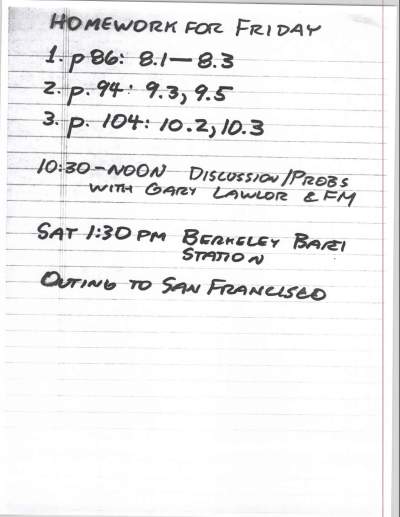 HOMEWORK FOR FRIDAY
1. p 86: 8.1—8.3
2. p. 94: 9.3, 9.5
3. p. 104: 10.2, 10.3
10:30-NOON DISCUSSION/PROBS
WITH GARY LAWLOR & FM
SAT 1:30 PM BERKELEY BART
STATION
OUTING TO SAN FRANCISCO